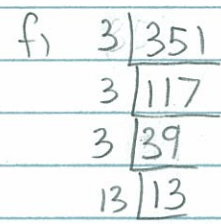 f) 3|351
3|117
3|39
13|13